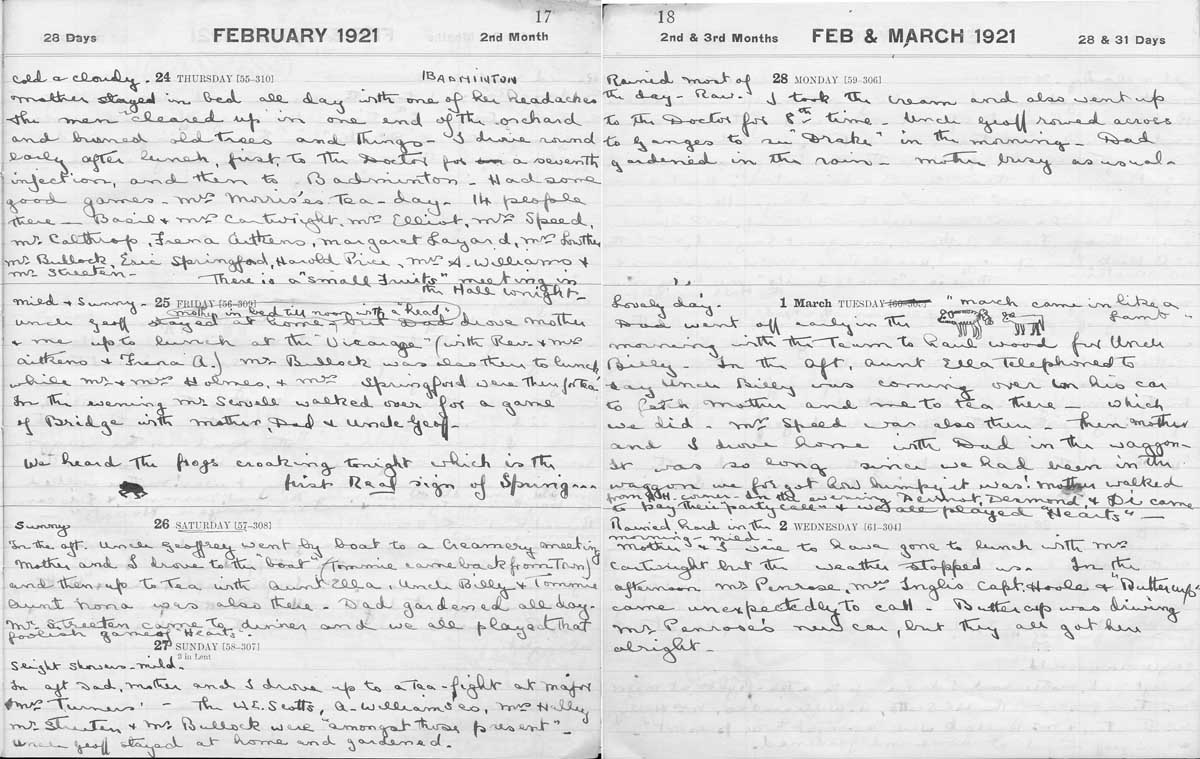 17
28 Days FEBRUARY 1921 2nd Month
Cold & cloudy. 24 THURSDAY [55-310] BADMINTON
Mother stayed in bed all day with one of her headaches
The men cleared up in one end of the orchard
and burned old trees and things - I drove round
early after lunch, first to the Doctor for a seventh
injection, and then to Badminton - Had some
good games - Mrs Morris'es Tea-day. 14 people
there - Basil & Mrs Cartwright, Mrs Elliot, Mrs Speed,
Mr Calthrop, Frena Aitkens, Margaret Layard, Mrs Lowther
Mr Bullock, Eric Springford, Harold Price, Mrs A. Williams &
Mr Streeten - There is a "Small Fruits" meeting in
the Hall tonight -
Mild & Sunny - 25 FRIDAY [56-309]
Mother in bed till noon with a "head".
Uncle Geoff stayed at home - but Dad drove Mother
& me up to lunch at the "Vicarage" (with Rev. & Mrs
Aitkens & Frena A.) Mr Bullock was also there to lunch
while Mr & Mrs Holmes, & Mrs Springford were there for tea
In the evening Mr Scovell walked over for a game
of Bridge with Mother, Dad & Uncle Geoff -
We heard the frogs croaking tonight which is the
first Real sign of Spring...
Sunny 26 SATURDAY [57-308]
In the aft. Uncle Geoffrey went by boat to a Creamery meeting
Mother and I drove to the "boat" (Tommie came back from Town)
and then up to Tea with Aunt Ella, Uncle Billy & Tommie
Aunt Nona was also there - Dad gardened all day -
Mr Streeten came to dinner and we all played that
foolish game of "Hearts" -
27 SUNDAY [58-307]
3 in Lent
Slight showers - mild.
In aft Dad, Mother and I drove up to a Tea-fight at Major
& Mrs Turners' - The W.E. Scotts, A. Williams'es, Mrs Halley
Mr Streeten & Mr Bullock were "amongst those present" -
Uncle Geoff stayed at home and gardened.
18
2nd & 3rd Months FEB & MARCH 1921 28 & 31 Days
Rained most of 28 MONDAY [59-306]
the day - Raw. I took the cream and also went up
to the Doctor for 8th time - Uncle Geoff rowed across
to Ganges to see "Drake" in the morning - Dad
gardened in the rain - Mother busy as usual -
Lovely day. 1 March TUESDAY "March came in like a
Lamb"
Dad went off early in the
morning with the Team to haul wood for Uncle
Billy. In the aft. Aunt Ella telephoned to
say Uncle Billy was coming over in his car
to fetch Mother and me to tea there - which
we did. Mrs Speed was also there - Then Mother
and I drove home with Dad in the waggon -
It was so long since we had been in the
waggon we forgot how bumpy it was! Mother walked
from corner - In the evening Dermot, Desmond, & Di came
to pay their "party call" & we all played "Hearts" -
Rained hard in the 2 WEDNESDAY [61-304]
morning - mild -
Mother & I were to have gone to lunch with Mrs
Cartwright but the weather stopped us - In the
afternoon Mrs Penrose, Mrs Inglis Capt. Hoole & "Buttercup"
came unexpectedly to call - Buttercup was driving
Mrs Penrose's new car, but they all got here
alright -